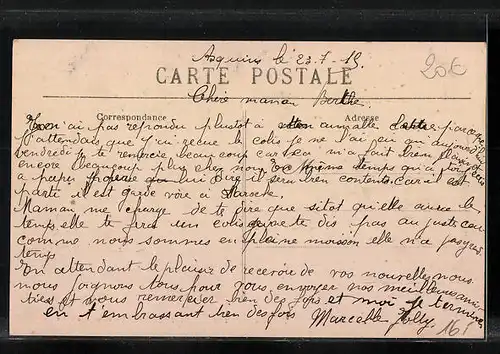 Asquins le 23-7-15
20€
CARTE POSTALE
Chère maman Berthe
Correspondance Adresse
ai pas repondu plustot à aimable parceque
j'attendais que j'ai recue le colis je ne l'ai eu qu aujourd
vendredi je te remercie beaucoup car ca m'a fait bien plaisir
encore beaucoup plus chez nous en meme temps qu'a
a papa lui dire il sera bien content car il est
parti il est garde voie à
Maman me charge de te dire que sitot qu'elle aura le
temps elle te fera un colis te dis pas au juste car
comme nous sommes en pleine moisson elle n'a pas grd
temps
En attendant le plaisir de recevoir de vos nouvelles nous
nous joignons tous pour vous envoyer nos meilleures
et vous remercier bien des fois et moi je termine
en t'embrassant bien des fois Marcelle Jolly
16F